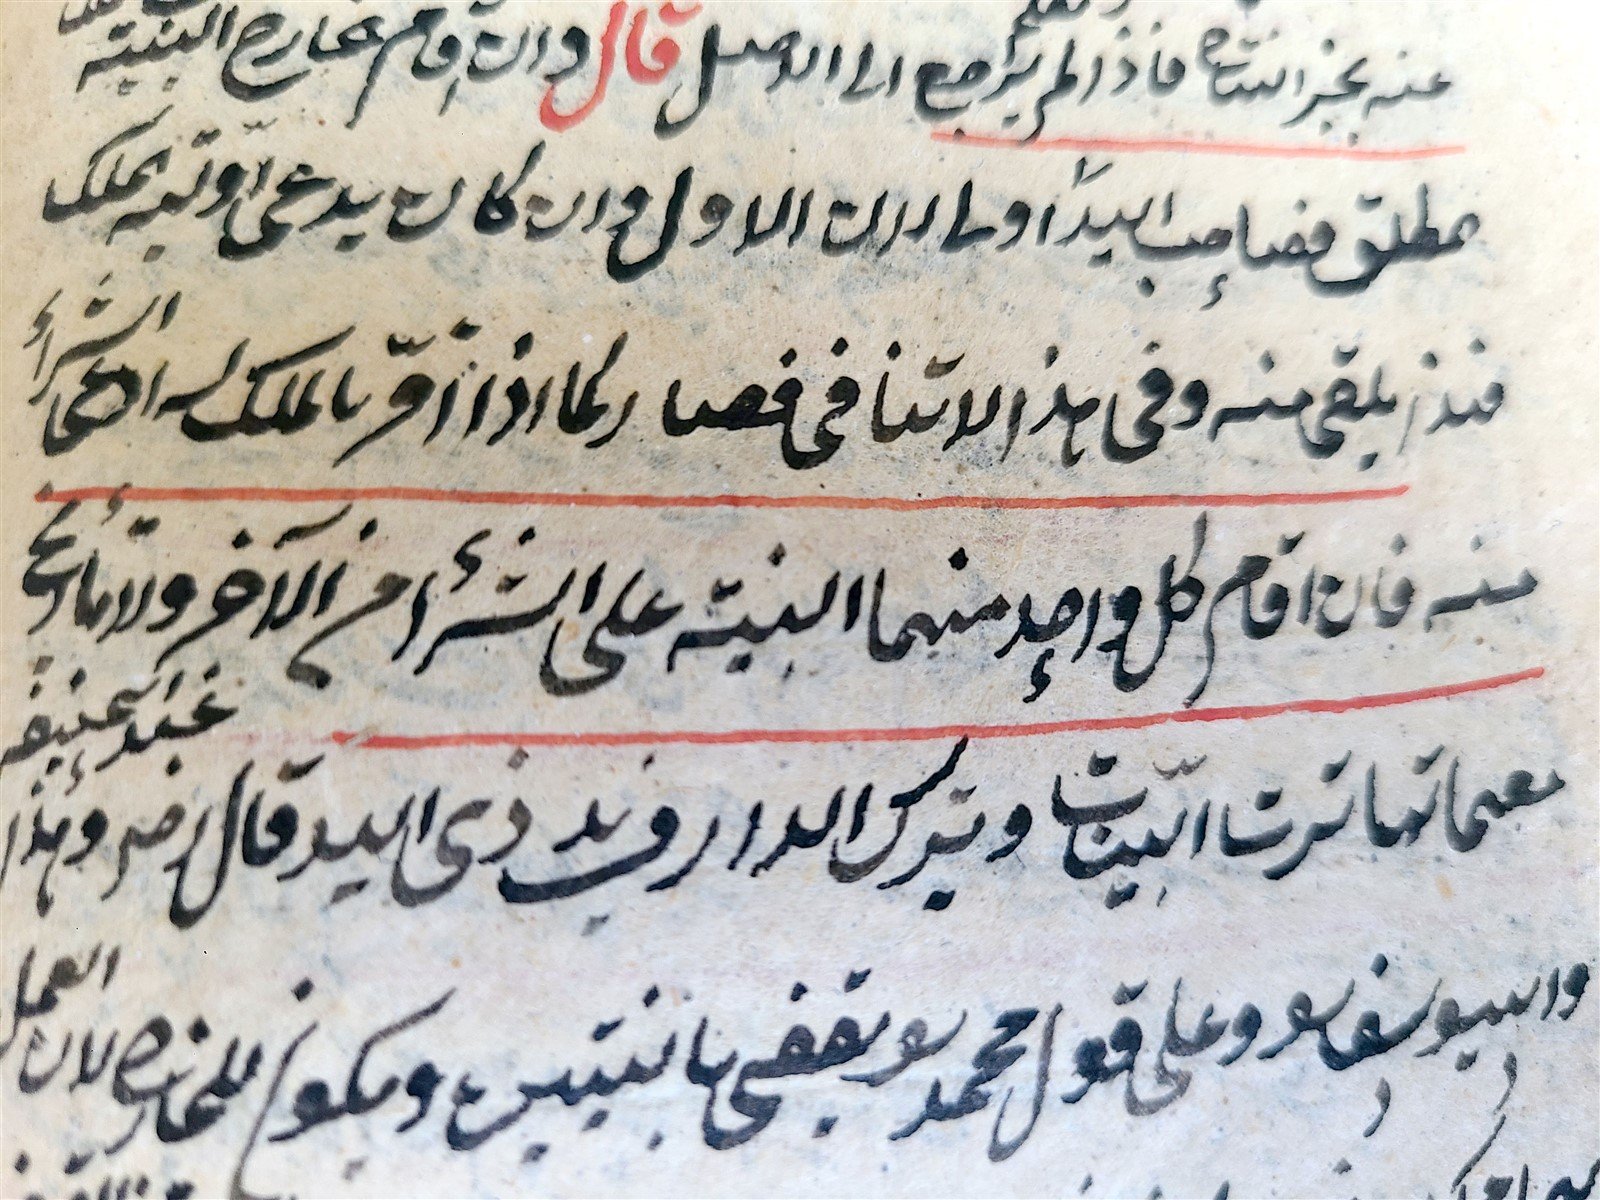 عنه بخبر الشاة فاذا لم يراجع الى الاصل قال وان اقام الخارج البينة
مطلق فصاحب اليد اولى لان الاول وان كان يدعى اولية الملك
فهذا يلقى منه وفى هذا لا تنافى فصار كما اذا اقر بالملك له ادعى الشراء
منه فان اقام كل واحد منهما البينة على الشراء من الآخر ولا تاريخ
معهما تهاترت البينات وبترك الدار فى يد ذى اليد قال رض وهذا عند ابيحنيفه
وابيوسف وعلى قول محمد يقضى بالبينتين ويكون للخارج لان العمل